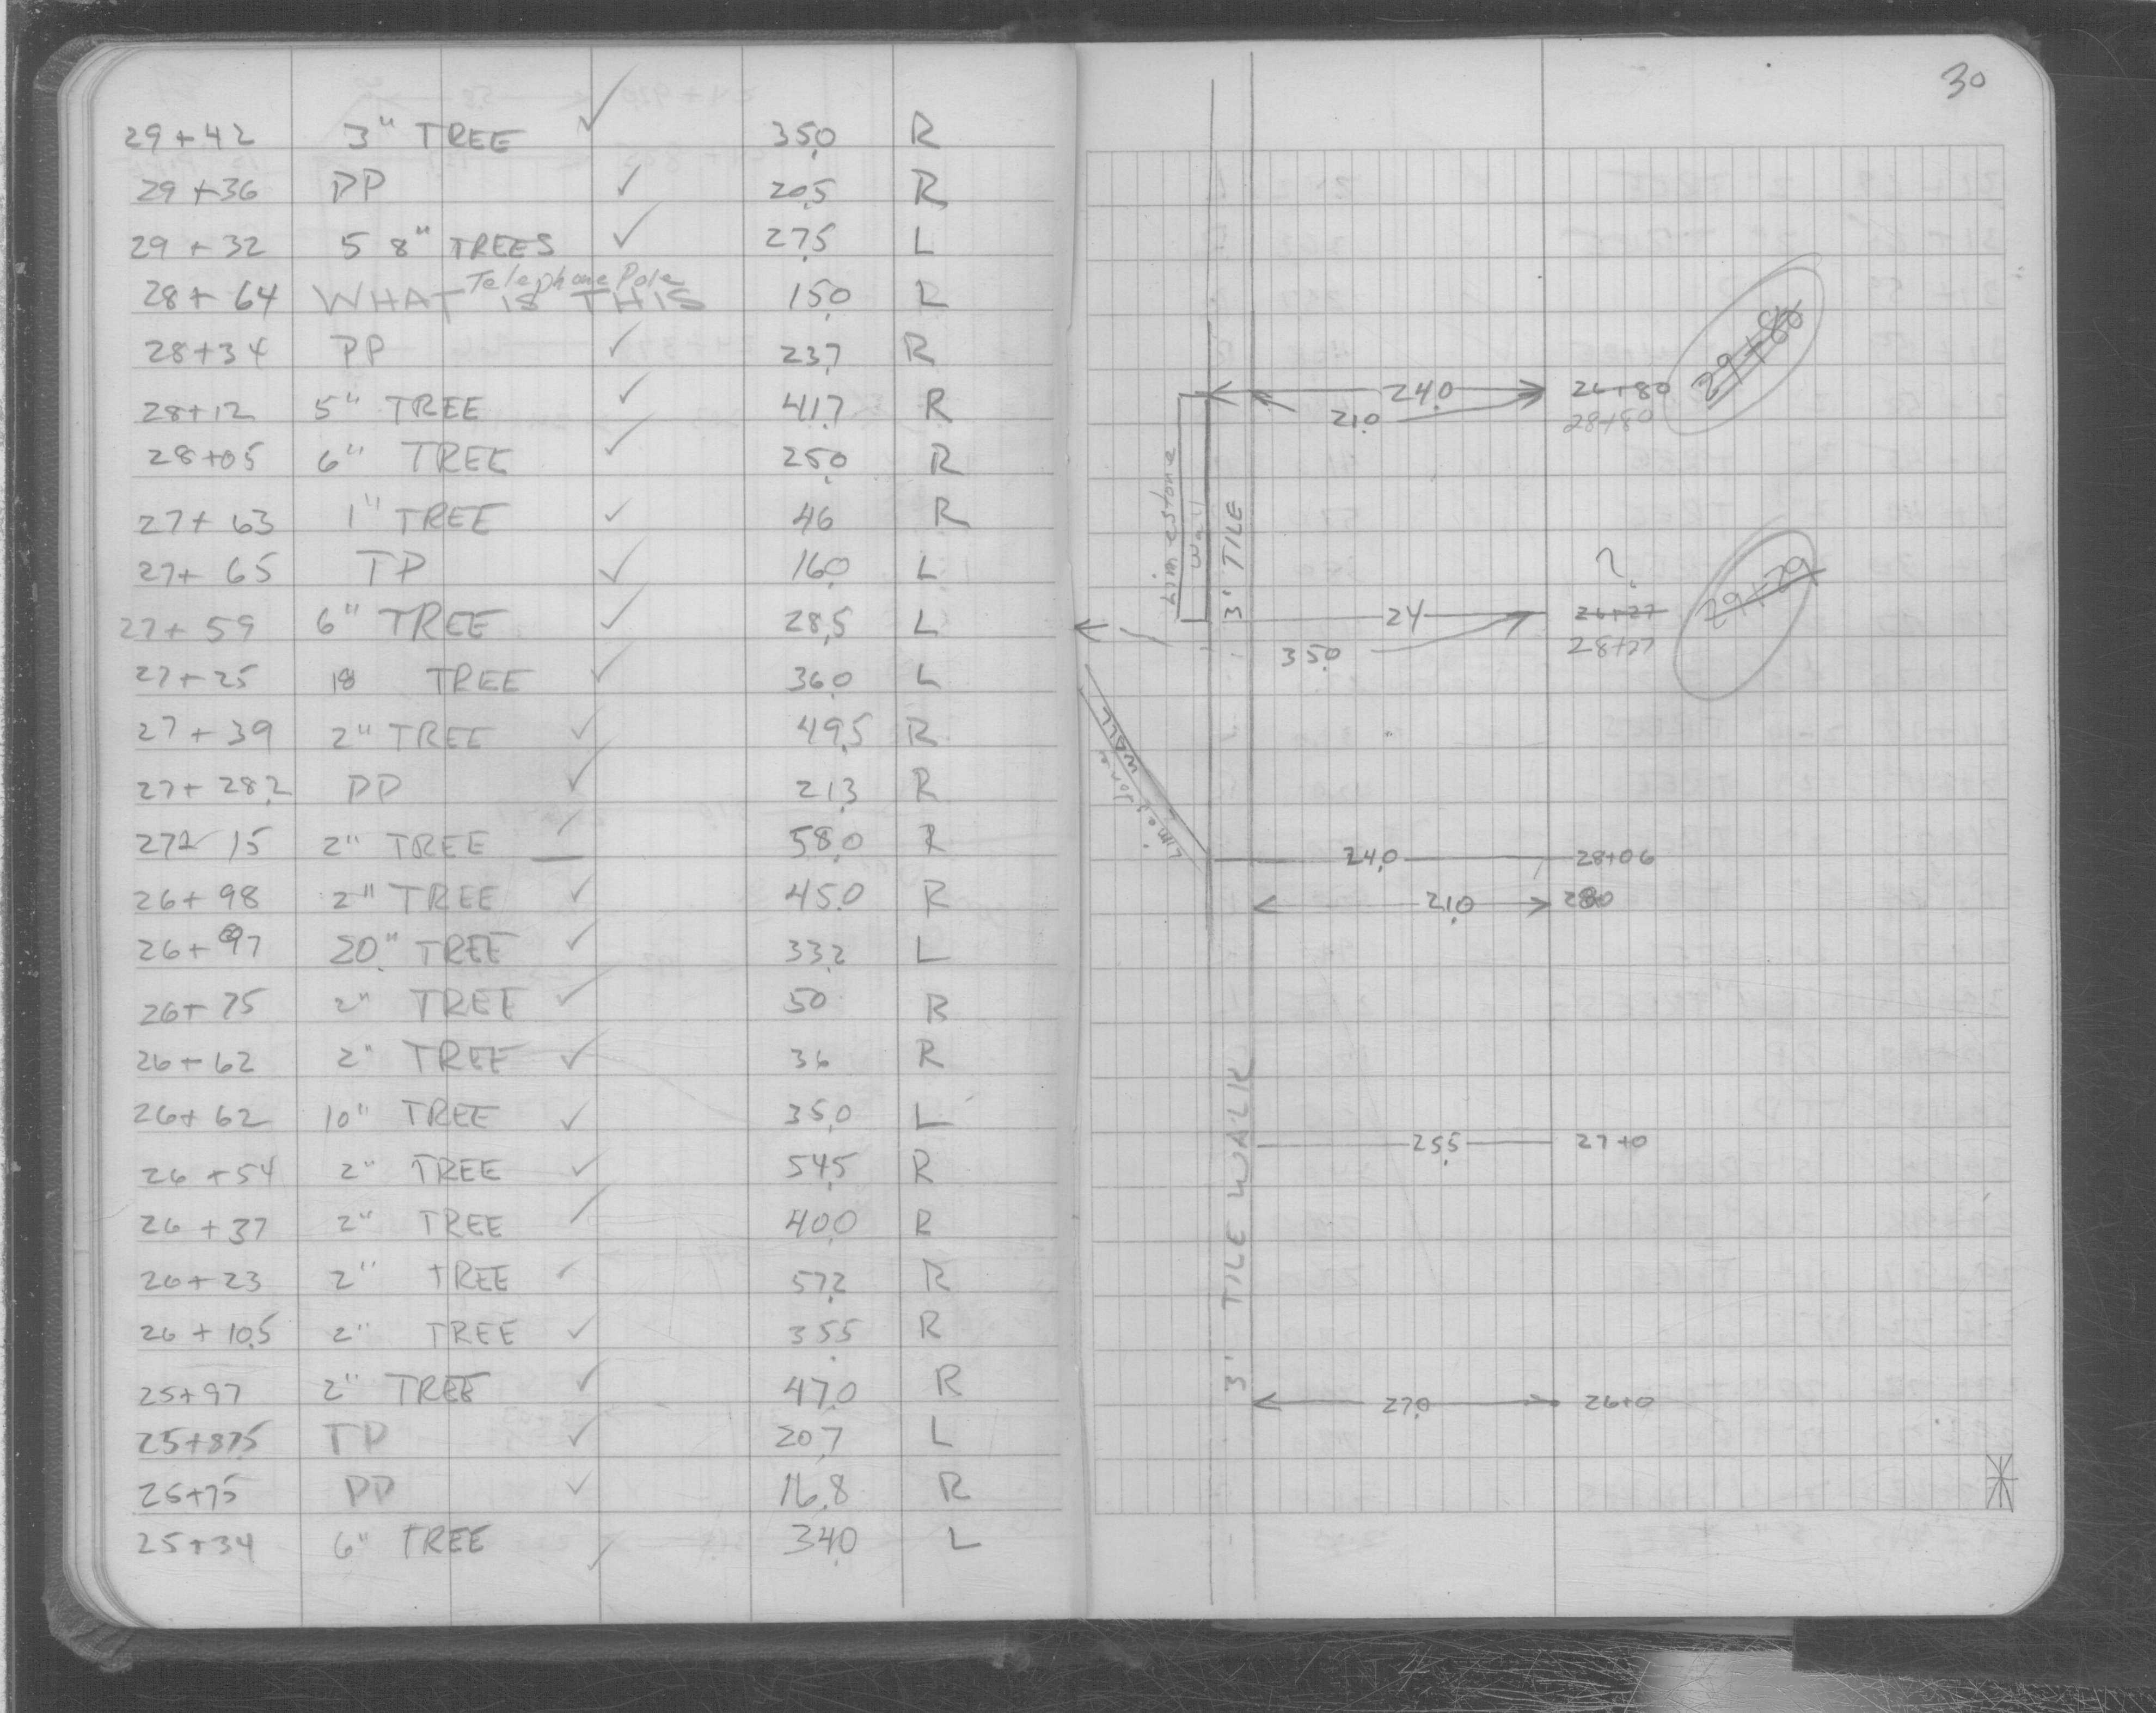 29+42 3" TREE ✓ 35.0 R
29+36 PP ✓ 20.5 R
29+32 5 8" TREES ✓ 27.5 L
Telephone Pole
28+64 WHAT IS THIS 15.0 L
28+34 PP ✓ 23.7 R
28+12 5" TREE ✓ 41.7 R
28+05 6" TREE ✓ 25.0 R
27+63 1" TREE ✓ 46 R
27+65 TP ✓ 16.0 L
27+59 6" TREE ✓ 28.5 L
27+25 18 TREE ✓ 36.0 L
27+39 2" TREE ✓ 49.5 R
27+28.2 PP ✓ 21.3 R
27+15 2" TREE ✓ 58.0 R
26+98 2" TREE ✓ 45.0 R
26+97 20" TREE ✓ 33.2 L
26+75 2" TREE ✓ 50 R
26+62 2" TREE ✓ 36 R
26+62 10" TREE ✓ 35.0 L
26+54 2" TREE ✓ 54.5 R
26+37 2" TREE ✓ 40.0 R
26+23 2" TREE ✓ 57.2 R
26+10.5 2" TREE ✓ 35.5 R
25+97 2" TREE ✓ 47.0 R
25+87.5 TP ✓ 20.7 L
25+75 PP ✓ 16.8 R
25+34 6" TREE ✓ 34.0 L
30
24.0 26+80
21.0 28+80
Limestone
Wall
3' TILE
?
24 26+27 29+29
35.0 28+27
Limestone WALL
24.0 28+06
21.0
3' TILE WALK
25.5 27+0
27.0 26+0